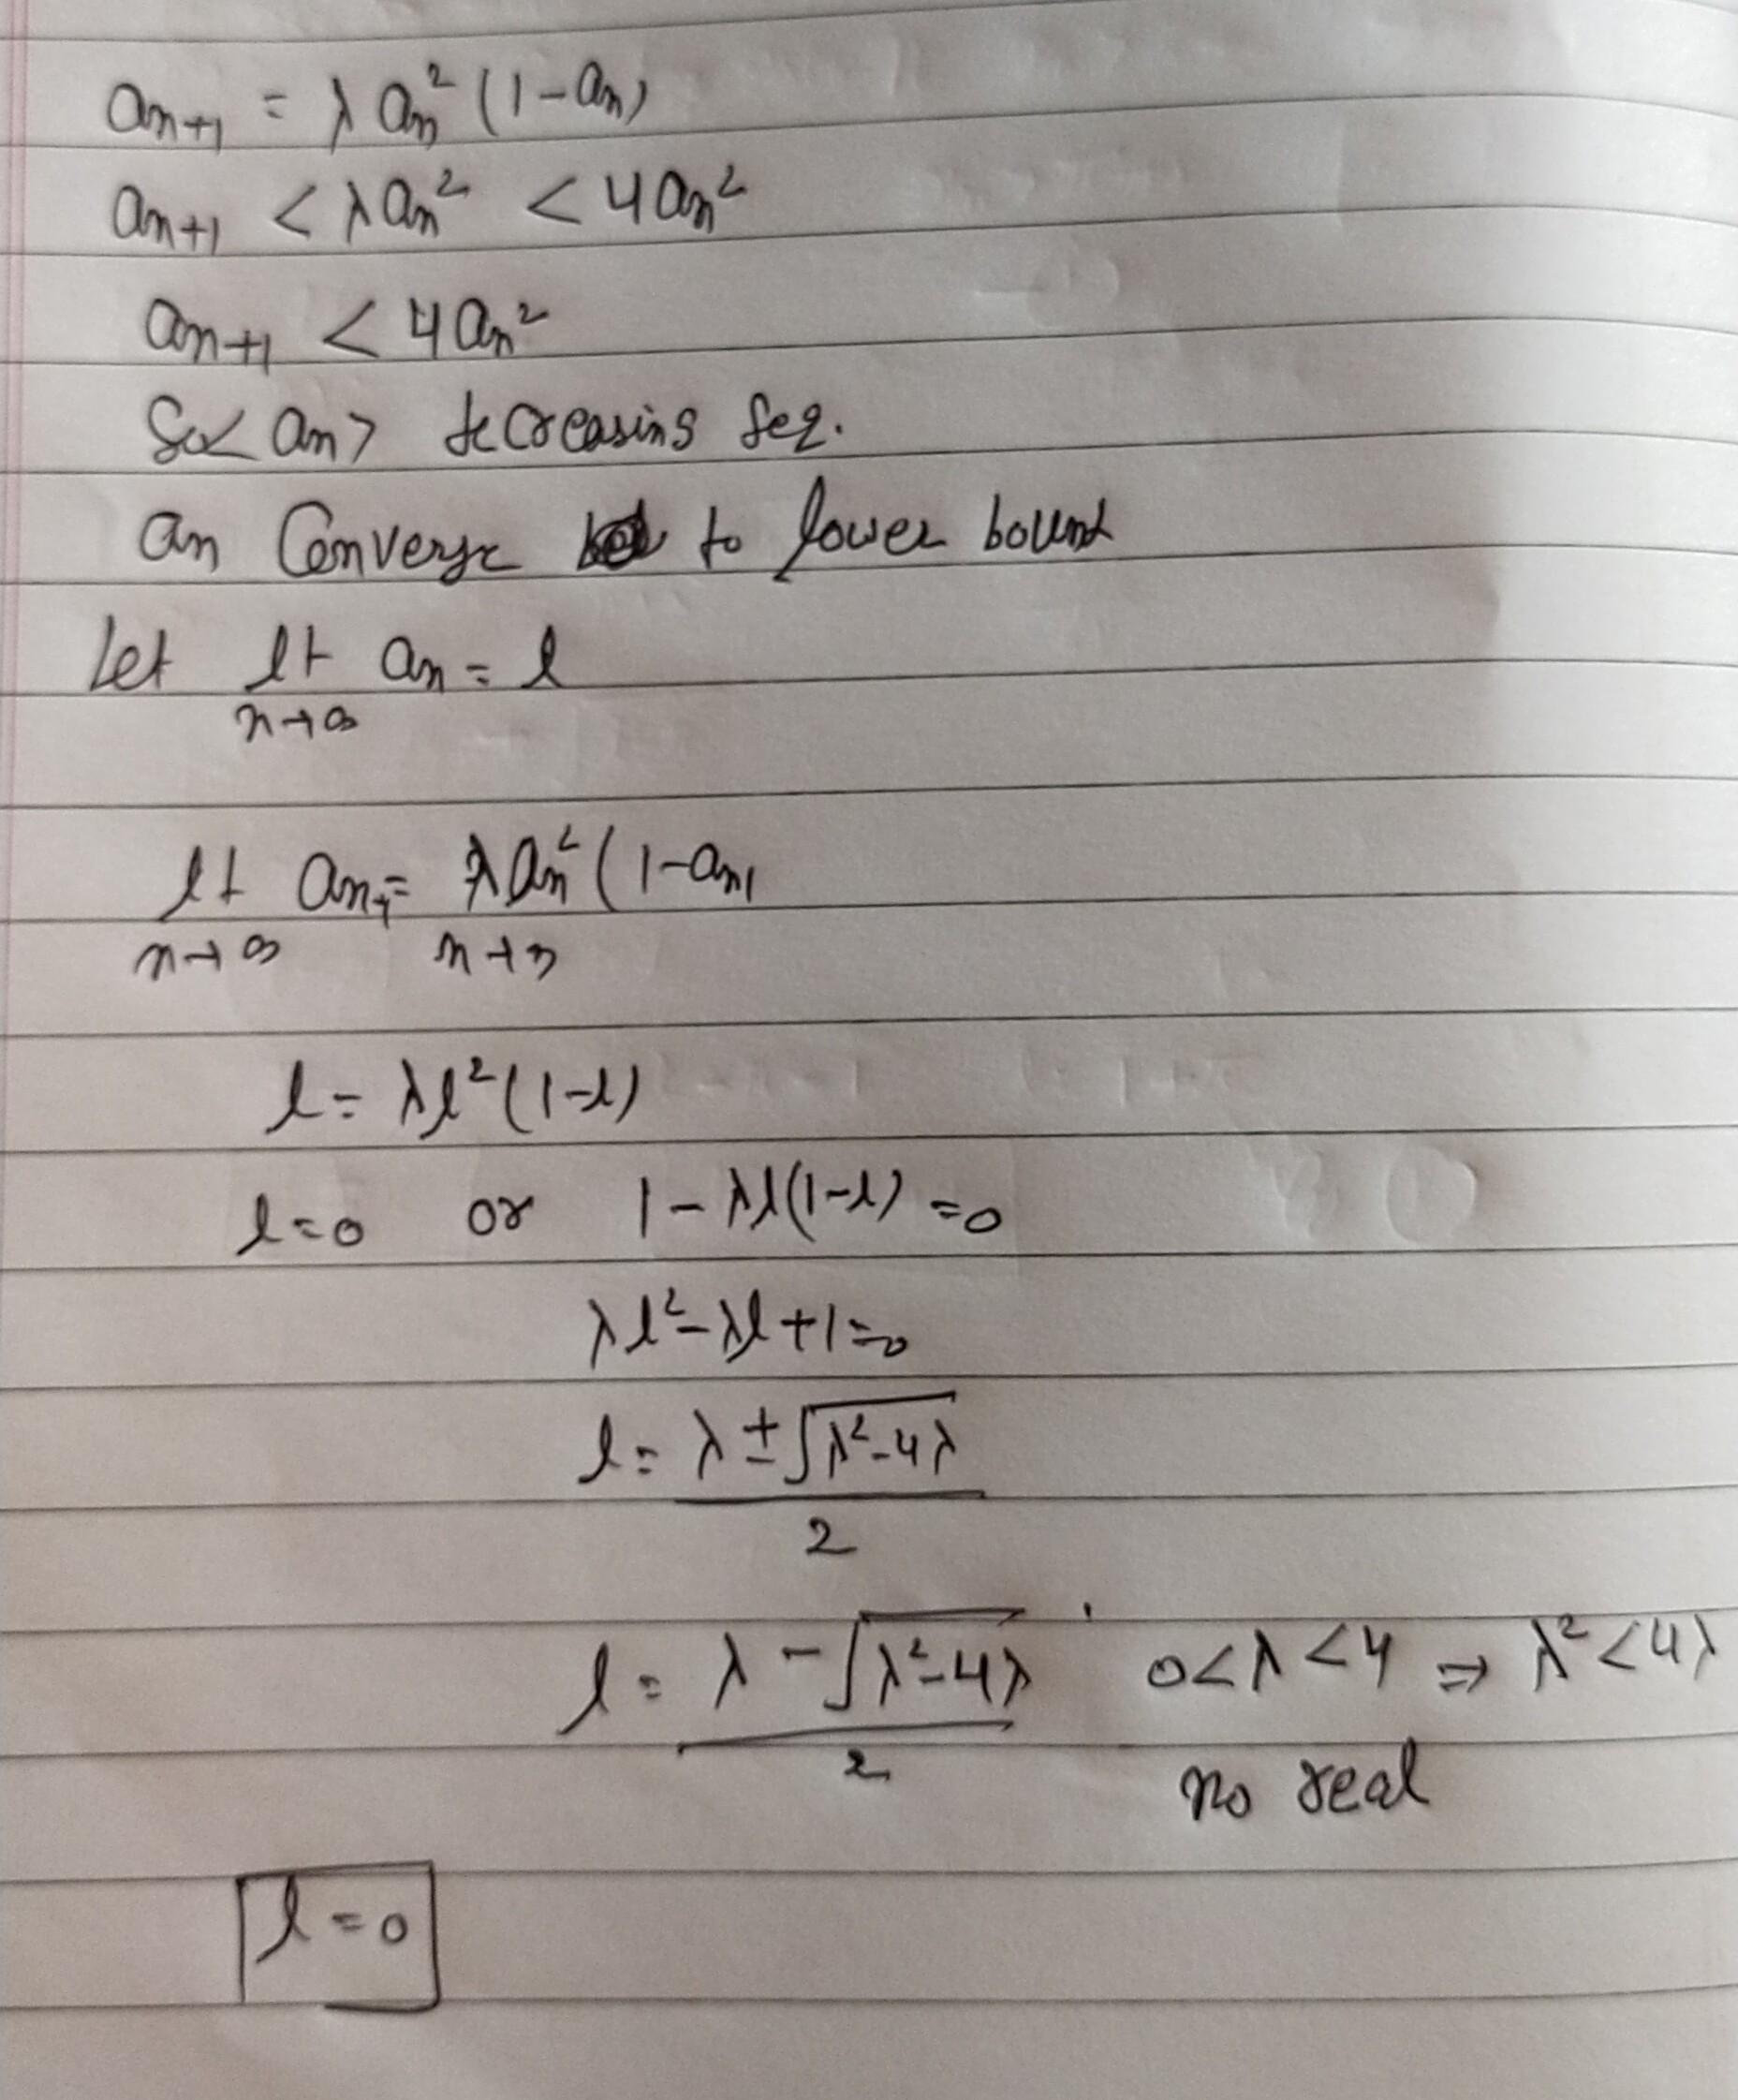 an+1 = λ an² (1-an)
an+1 < λ an² < 4 an²
an+1 < 4 an²
So < an > decreasing seq.
an Converge to lower bound
Let lt an = l
n→∞
lt an+ = λ an² (1-an)
n→∞ n→∞
l = λl² (1-l)
l=0 or 1 - λl(1-l) =0
λl² - λl + 1 = 0
l = λ ± √λ²-4λ
2
l = λ - √λ²-4λ 0<λ<4 ⇒ λ²<4λ
2
no real
l = 0